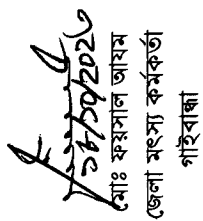 ১৮/১০/২০২৩
মোঃ ফয়সাল আযম
জেলা মৎস্য কর্মকর্তা
গাইবান্ধা